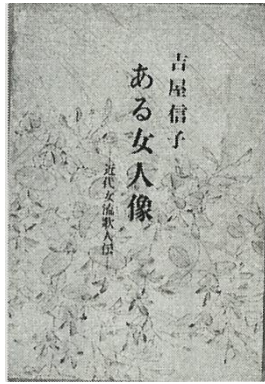 吉屋信子
ある女人像
近代女流歌人伝